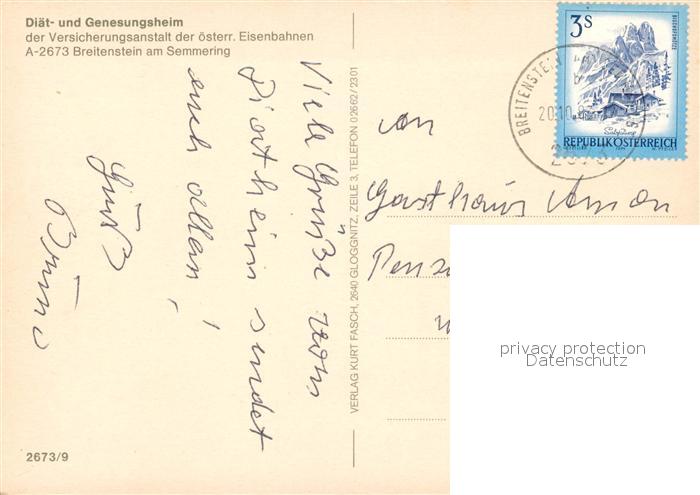 Diät- und Genesungsheim
der Versicherungsanstalt der österr. Eisenbahnen
A-2673 Breitenstein am Semmering
Viele Grüße vom
Diätheim sendet
euch allen!
Gruß
Bruno
2673/9
VERLAG KURT FASCH, 2640 GLOGGNITZ, ZEILE 3, TELEFON 02662/2301
3S
REPUBLIK ÖSTERREICH
BREITENSTEIN
20.10.
2673
an
Gasthaus
privacy protection
Datenschutz